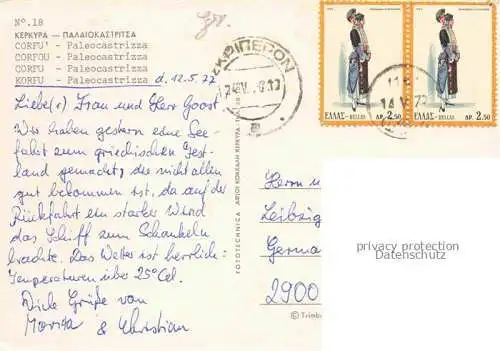 Nº.18
ΚΕΡΚΥΡΑ — ΠΑΛΑΙΟΚΑΣΤΡΙΤΣΑ
CORFU' - Paleocastrizza
CORFOU - Paleocastrizza
QORFU - Paleocastrizza
KORFU - Paleocastrizza d. 12.5.77
Liebe(r) Frau und Herr Goost
Wir haben gestern eine See-
fahrt zum griechischen Fest-
land gemacht, die nicht allen
gut bekommen ist, da auf der
Rückfahrt ein starker Wind
das Schiff zum Schaukeln
brachte. Das Wetter ist herrlich.
Temperaturen über 25° Cel.
Viele Grüße von
& Christian
ΕΛΛΑΣ-HELLAS ΔΡ. 2.50
ΕΛΛΑΣ-HELLAS ΔΡ. 2.50
Herrn u
Leibzig
Germa
2900
privacy protection
Datenschutz